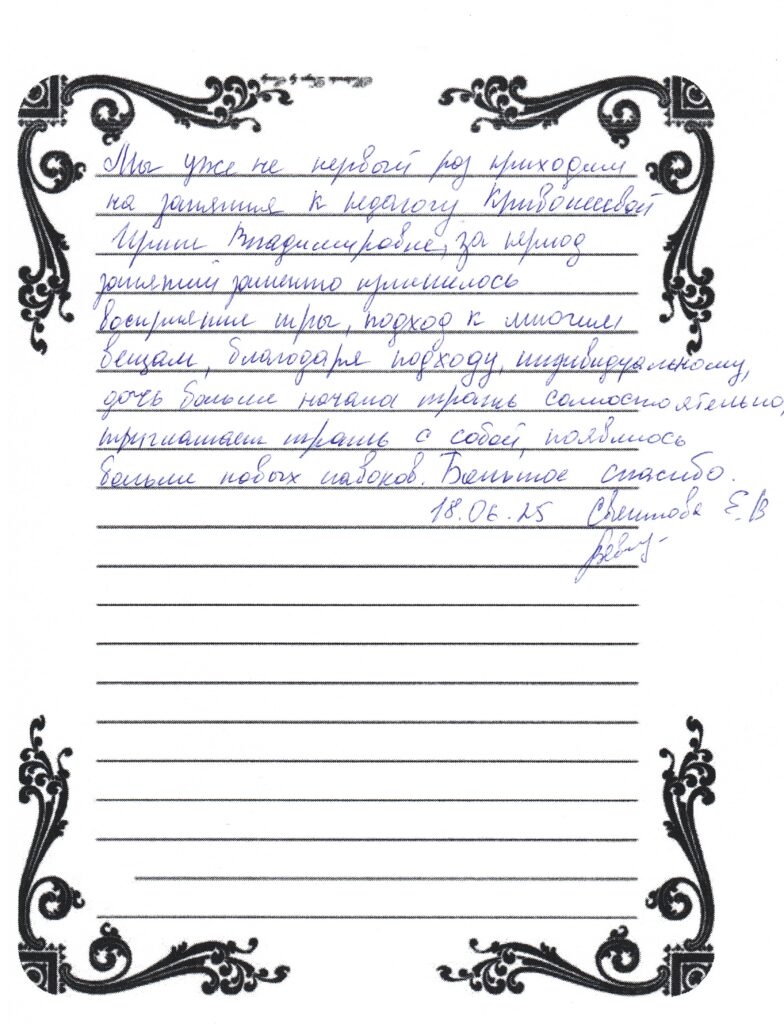 Мы уже не первый раз приходим
на занятия к педагогу Кривошеевой
Ирине Владимировне, за период
занятий заметно изменилось
восприятия игры, подход к многим
вещам, благодаря подходу, индивидуальному,
дочь больше начала играть самостоятельно,
приглашает играть с собой, появилось
больше новых навыков. Большое спасибо.
18.06.25 Е.В